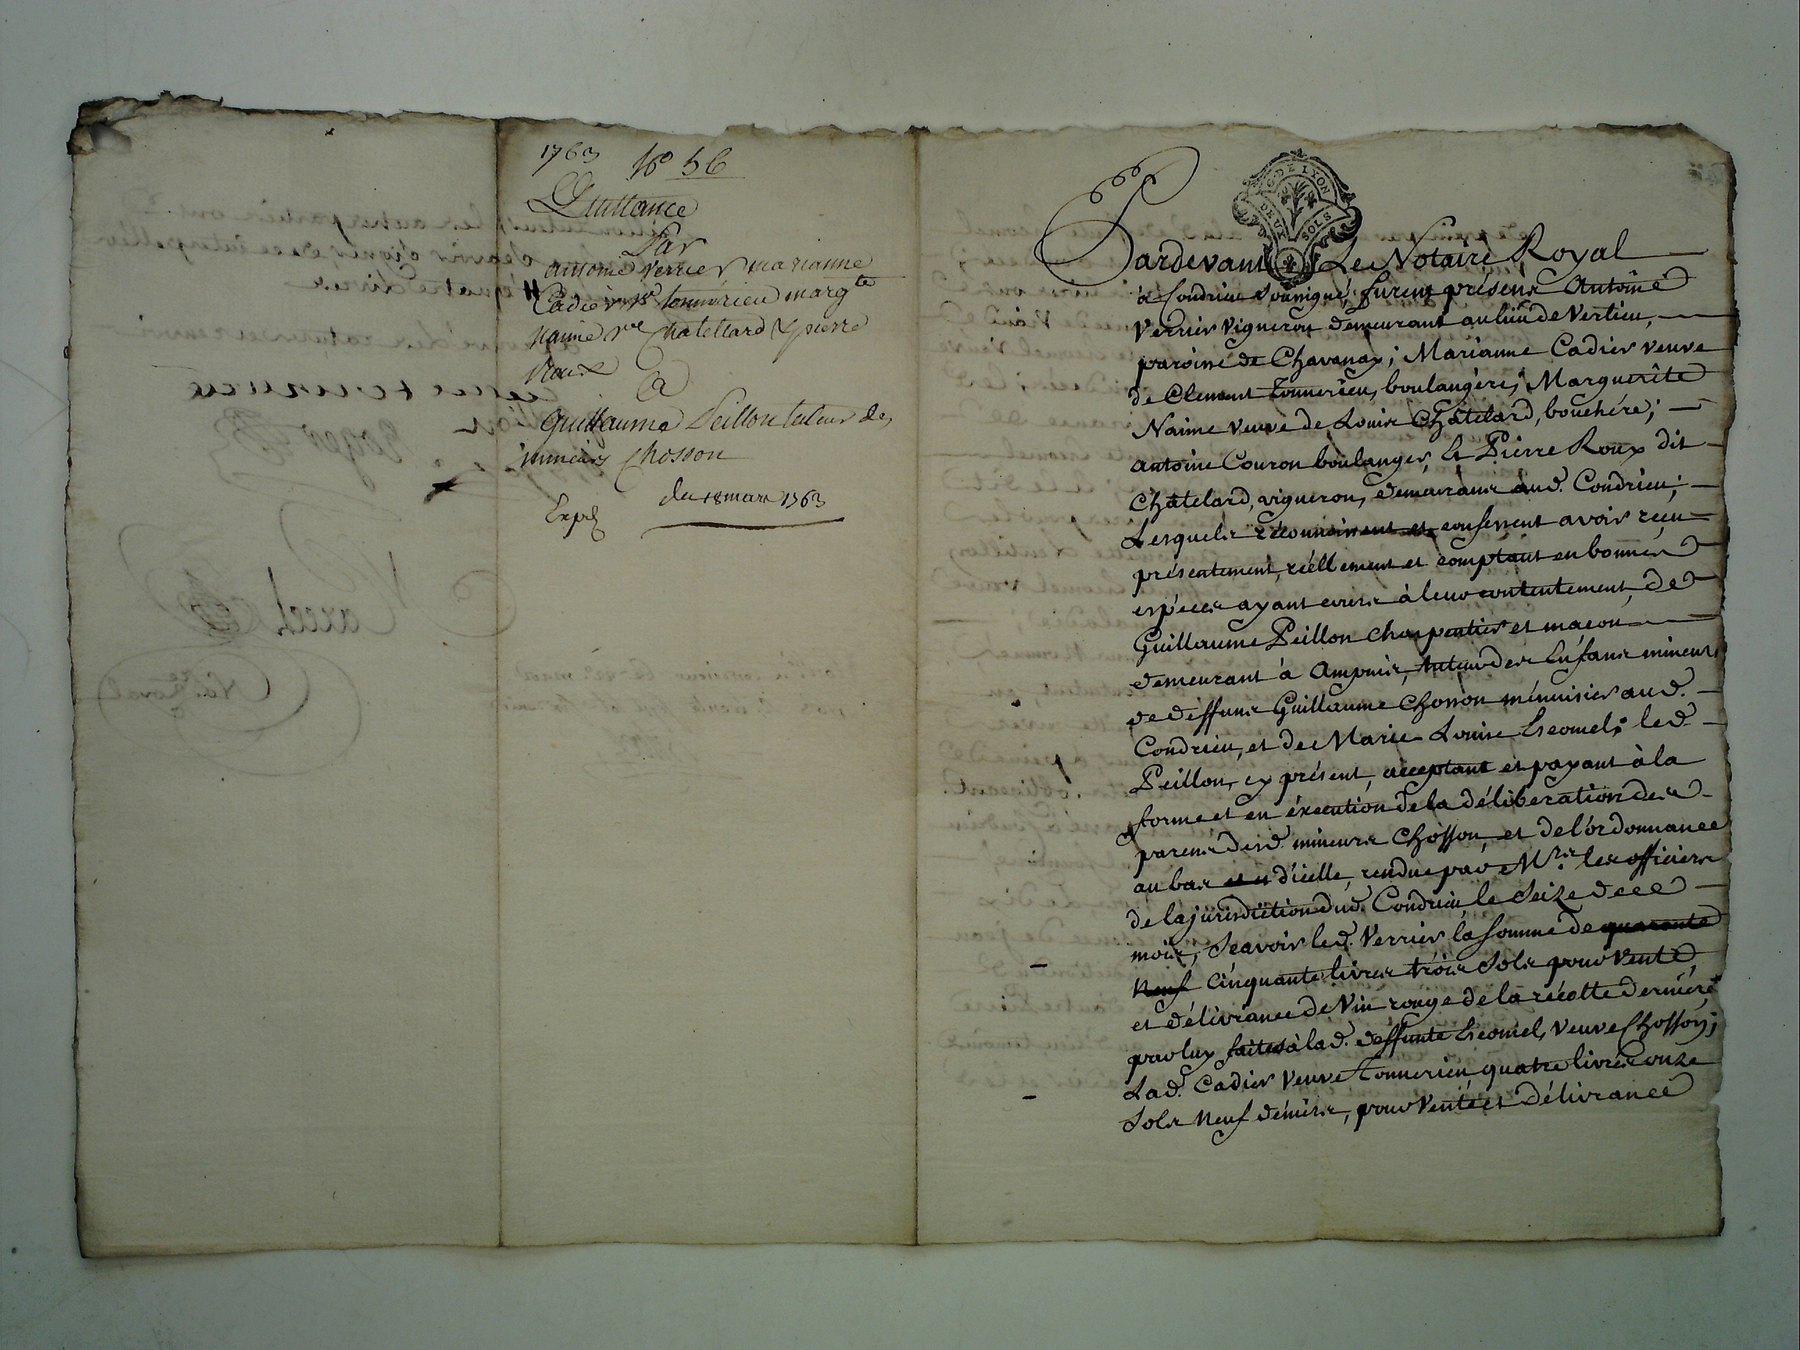 1763 No 56
Quittance
Par
antoine Verrier marianne
Cadier ve tonnerieu margte
naime ve Chatellard & pierre
Roux
a
Guillaume Peillon tuteur des
mineurs Chosson
du 18 mars 1763
Expé
G. DE LYON
DEUX SOLS
Pardevant Le Notaire Royal
à Condrieu soussigné, furent présens Antoine
Verrier vigneron demeurant au lieu de Verlieu,
paroisse de Chavanay; Marianne Cadier veuve
de Clement Tonnerieu, boulangère; Marguerite
Naime veuve de Louis Châtelard, bouchére;
antoine Couron boulanger, et Pierre Roux dit
Châtelard, vigneron, demeurans aud. Condrieu;
Lesquels réconnoissent et confessent avoir reçu
présentement, réellement et comptant en bonnes
espèces ayant cours à leur contentement, de
Guillaume Peillon charpentier et maçon
demeurant à Ampuis, tuteur des Enfans mineurs
de deffunt Guillaume Chosson ménuisier aud.
Condrieu, et de Marie Louise Escomel; led.
Peillon, cy présent, acceptant et payant à la
forme et en éxecution de la délibération des
parens desd. mineurs Chosson, et de l'ordonnance
au bas d'icelle, rendue par Mrs. les officiers
de la jurisdiction dud. Condrieu, le Seize de ce
mois, Scavoir led. Verrier la somme de quarante
Neuf Cinquante livres trois Sols pour Vente
et délivrance de Vin rouge de la récolte derniére
par luy faites à lad. deffunte Escomel, veuve Chosson;
Lad. Cadier Veuve Tonnerieu quatre livres onze
Sols Neuf déniers, pour Vente et délivrance